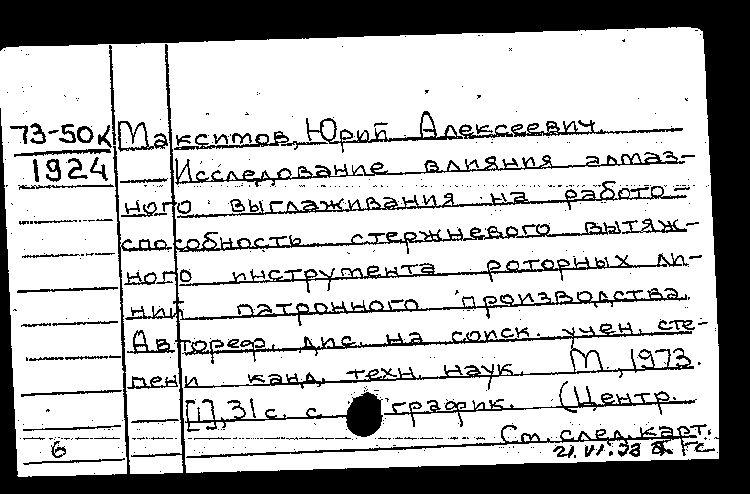 73-50к Максимов, Юрий Алексеевич.
1924 Исследование влияния алмаз-
ного выглаживания на работо-
способность стержневого вытяж-
ного инструмента роторных ли-
ний патронного производства.
Автореф. дис. на соиск. учен. сте-
пени канд. техн. наук. М., 1973.
[1], 31 с. с график. (Центр.
См. след. карт.
6